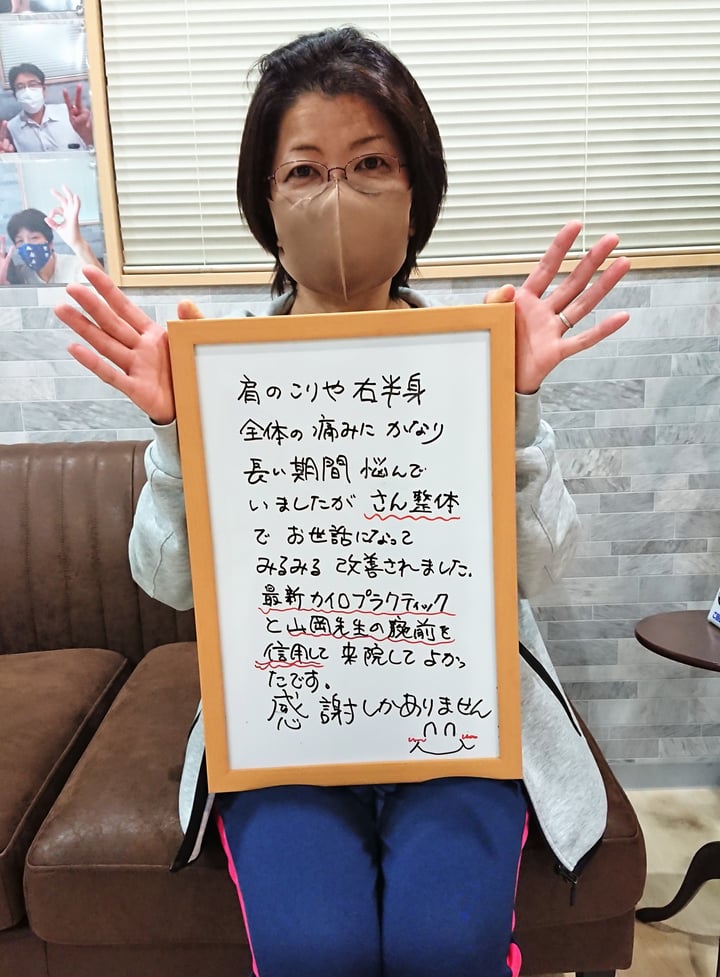 肩のこりや右半身
全体の痛みにかなり
長い期間悩んで
いましたがさん整体
でお世話になって
みるみる改善されました.
最新カイロプラクティック
と山岡先生の腕前を
信用して来院してよかっ
たです。
感謝しかありません